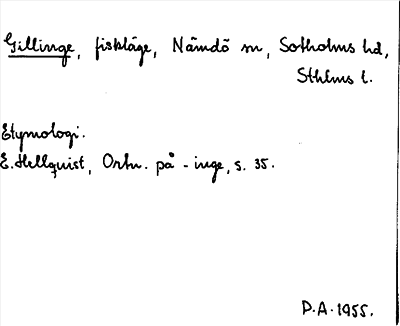 Gillinge, fiskläge, Nämdö sn, Sotholms hd,
Sthlms l.
Etymologi.
E. Hellquist, Ortn. på -inge, s. 35.
D.A. 1955.